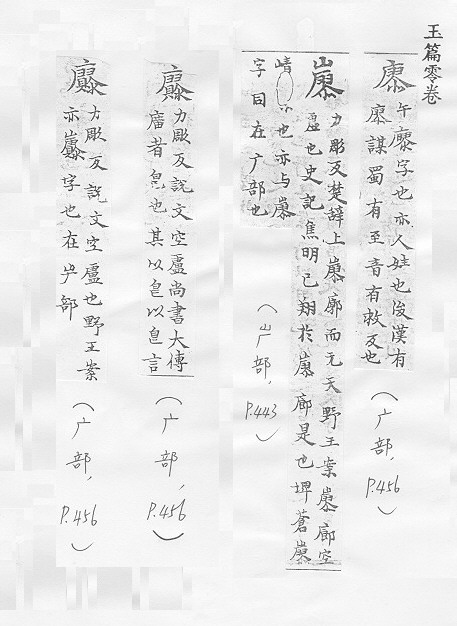 玉篇零卷
廖
午字也亦人姓也後漢有
廖謀蜀有至音有救反也
（广部，P.456）
力彫反楚辭上廓而无天野王案廊空
虛也史記焦明已翔於廊是也埤蒼
崝也亦与
字同在广部也
（屵部，P.443）
力彫反說文空虛尚書大傳
廣者皃也其以皃以皃言
（广部，P.456）
力彫反說文空虛也野王案
亦字也在屵部
（广部，P.456）